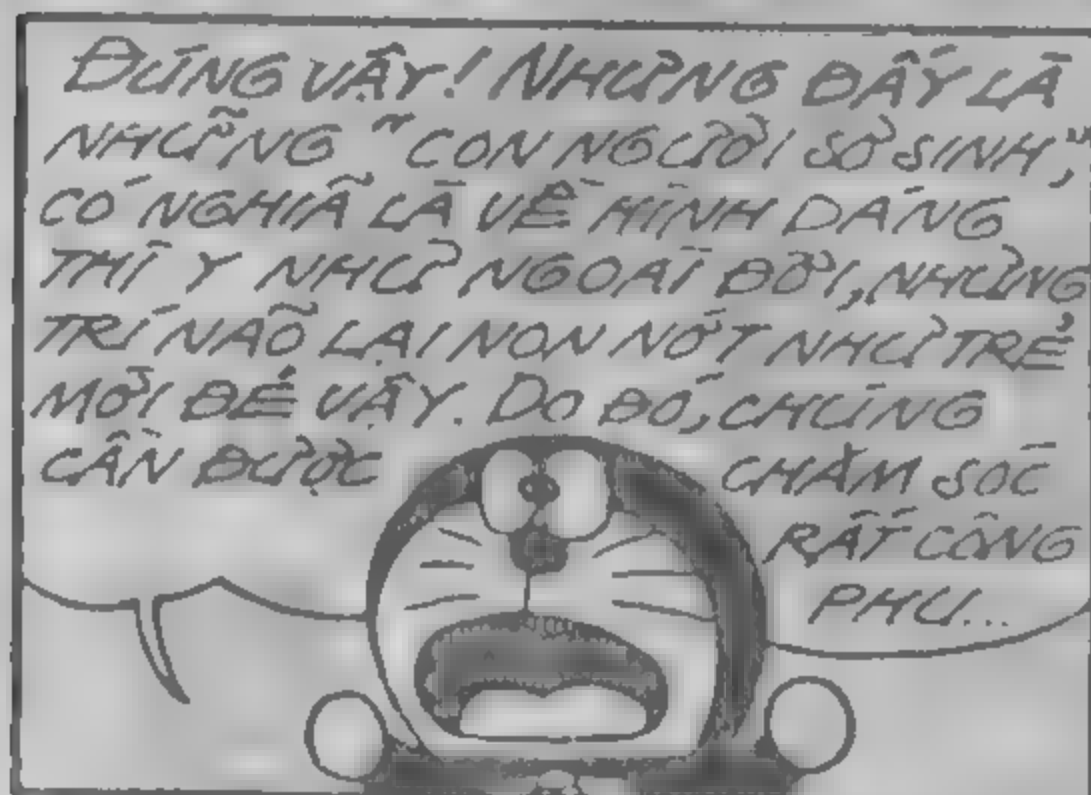 ĐÚNG VẬY! NHƯNG ĐẤY LÀ
NHỮNG "CON NGƯỜI SƠ SINH",
CÓ NGHĨA LÀ VỀ HÌNH DÁNG
THÌ Y NHƯ NGOÀI ĐỜI, NHƯNG
TRÍ NÃO LẠI NON NỚT NHƯ TRẺ
MỚI ĐẺ VẬY. DO ĐÓ, CHÚNG
CẦN ĐƯỢC CHĂM SÓC
RẤT CÔNG
PHU...